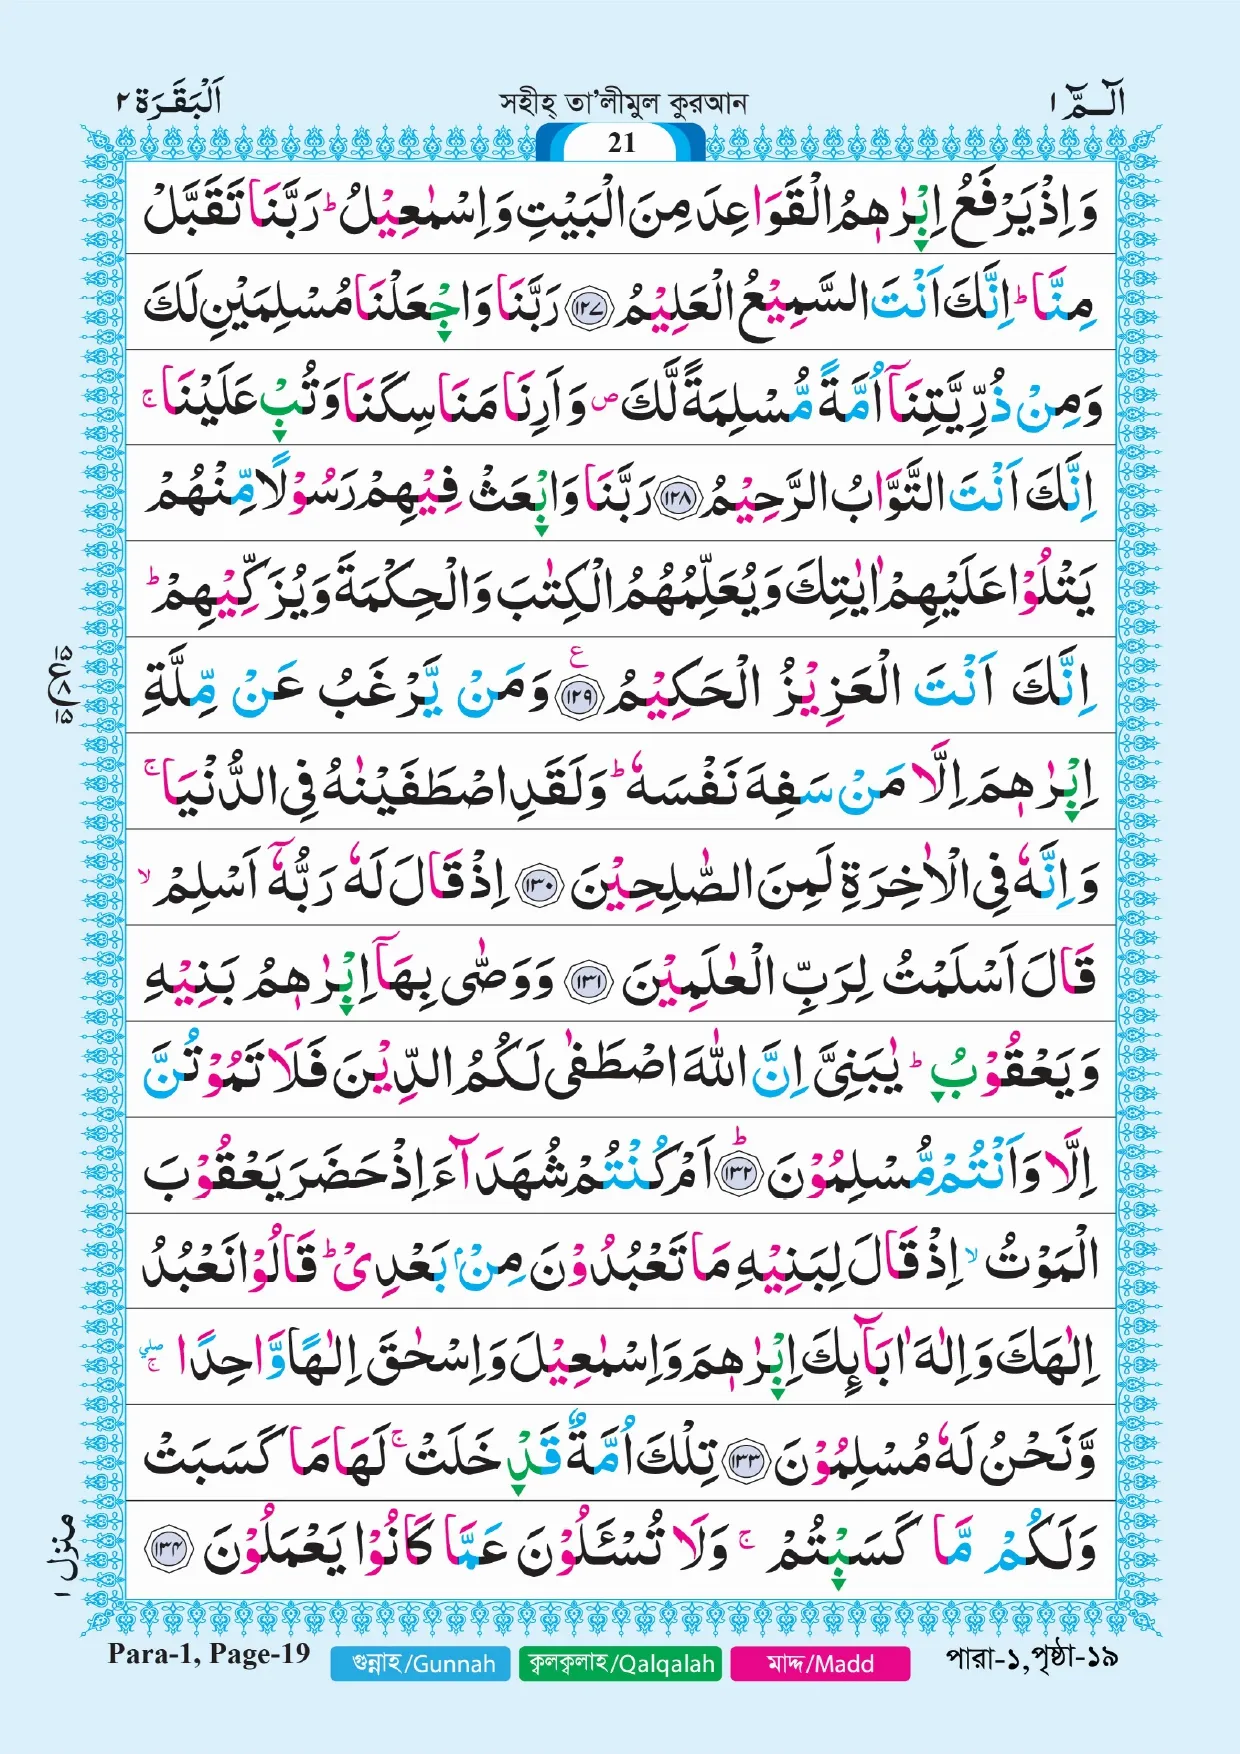 اَلْبَقَرَة ٢ সহীহ্ তা’লীমুল কুরআন الٓـمّٓ ١
21
وَاِذْ يَرْفَعُ اِبْرٰهٖمُ الْقَوَاعِدَ مِنَ الْبَيْتِ وَاِسْمٰعِيْلُ ؕ رَبَّنَا تَقَبَّلْ
مِنَّا ؕ اِنَّكَ اَنْتَ السَّمِيْعُ الْعَلِيْمُ ﴿۱۲۷﴾ رَبَّنَا وَاجْعَلْنَا مُسْلِمَيْنِ لَكَ
وَمِنْ ذُرِّيَّتِنَاۤ اُمَّةً مُّسْلِمَةً لَّكَ ۪ وَاَرِنَا مَنَاسِكَنَا وَتُبْ عَلَيْنَا ۚ
اِنَّكَ اَنْتَ التَّوَّابُ الرَّحِيْمُ ﴿۱۲۸﴾ رَبَّنَا وَابْعَثْ فِيْهِمْ رَسُوْلًا مِّنْهُمْ
يَتْلُوْا عَلَيْهِمْ اٰيٰتِكَ وَيُعَلِّمُهُمُ الْكِتٰبَ وَالْحِكْمَةَ وَيُزَكِّيْهِمْ ؕ
اِنَّكَ اَنْتَ الْعَزِيْزُ الْحَكِيْمُ ﴿۱۲۹﴾ ع وَمَنْ يَّرْغَبُ عَنْ مِّلَّةِ
١٥ ع ٨ ١٥
اِبْرٰهٖمَ اِلَّا مَنْ سَفِهَ نَفْسَهٗ ؕ وَلَقَدِ اصْطَفَيْنٰهُ فِى الدُّنْيَا ۚ
وَاِنَّهٗ فِى الْاٰخِرَةِ لَمِنَ الصّٰلِحِيْنَ ﴿۱۳۰﴾ اِذْ قَالَ لَهٗ رَبُّهٗۤ اَسْلِمْ ۙ
قَالَ اَسْلَمْتُ لِرَبِّ الْعٰلَمِيْنَ ﴿۱۳۱﴾ وَوَصّٰى بِهَاۤ اِبْرٰهٖمُ بَنِيْهِ
وَيَعْقُوْبُ ؕ يٰبَنِىَّ اِنَّ اللّٰهَ اصْطَفٰى لَكُمُ الدِّيْنَ فَلَا تَمُوْتُنَّ
اِلَّا وَاَنْتُمْ مُّسْلِمُوْنَ ؕ﴿۱۳۲﴾ اَمْ كُنْتُمْ شُهَدَآءَ اِذْ حَضَرَ يَعْقُوْبَ
الْمَوْتُ ۙ اِذْ قَالَ لِبَنِيْهِ مَا تَعْبُدُوْنَ مِنْۢ بَعْدِىْ ؕ قَالُوْا نَعْبُدُ
اِلٰهَكَ وَاِلٰهَ اٰبَآئِكَ اِبْرٰهٖمَ وَاِسْمٰعِيْلَ وَاِسْحٰقَ اِلٰهًا وَّاحِدًا ۖۚ
وَّنَحْنُ لَهٗ مُسْلِمُوْنَ ﴿۱۳۳﴾ تِلْكَ اُمَّةٌ قَدْ خَلَتْ ۚ لَهَا مَا كَسَبَتْ
وَلَكُمْ مَّا كَسَبْتُمْ ۚ وَلَا تُسْـَٔلُوْنَ عَمَّا كَانُوْا يَعْمَلُوْنَ ﴿۱۳۴﴾
منزل ١
Para-1, Page-19 গুন্নাহ/Gunnah ক্বলক্বলাহ/Qalqalah মাদ্দ/Madd পারা-১,পৃষ্ঠা-১৯